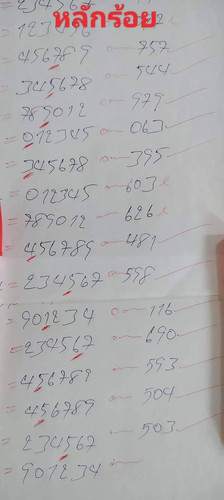 234567
หลักร้อย
123456
456789 757
345678 544
789012 979
012345 063
345678 395
012345 603
789012 626
456789 481
= 234567 598
= 901234 116
= 234567 690
= 456789 593
= 456789 504
= 234567 503
= 901234